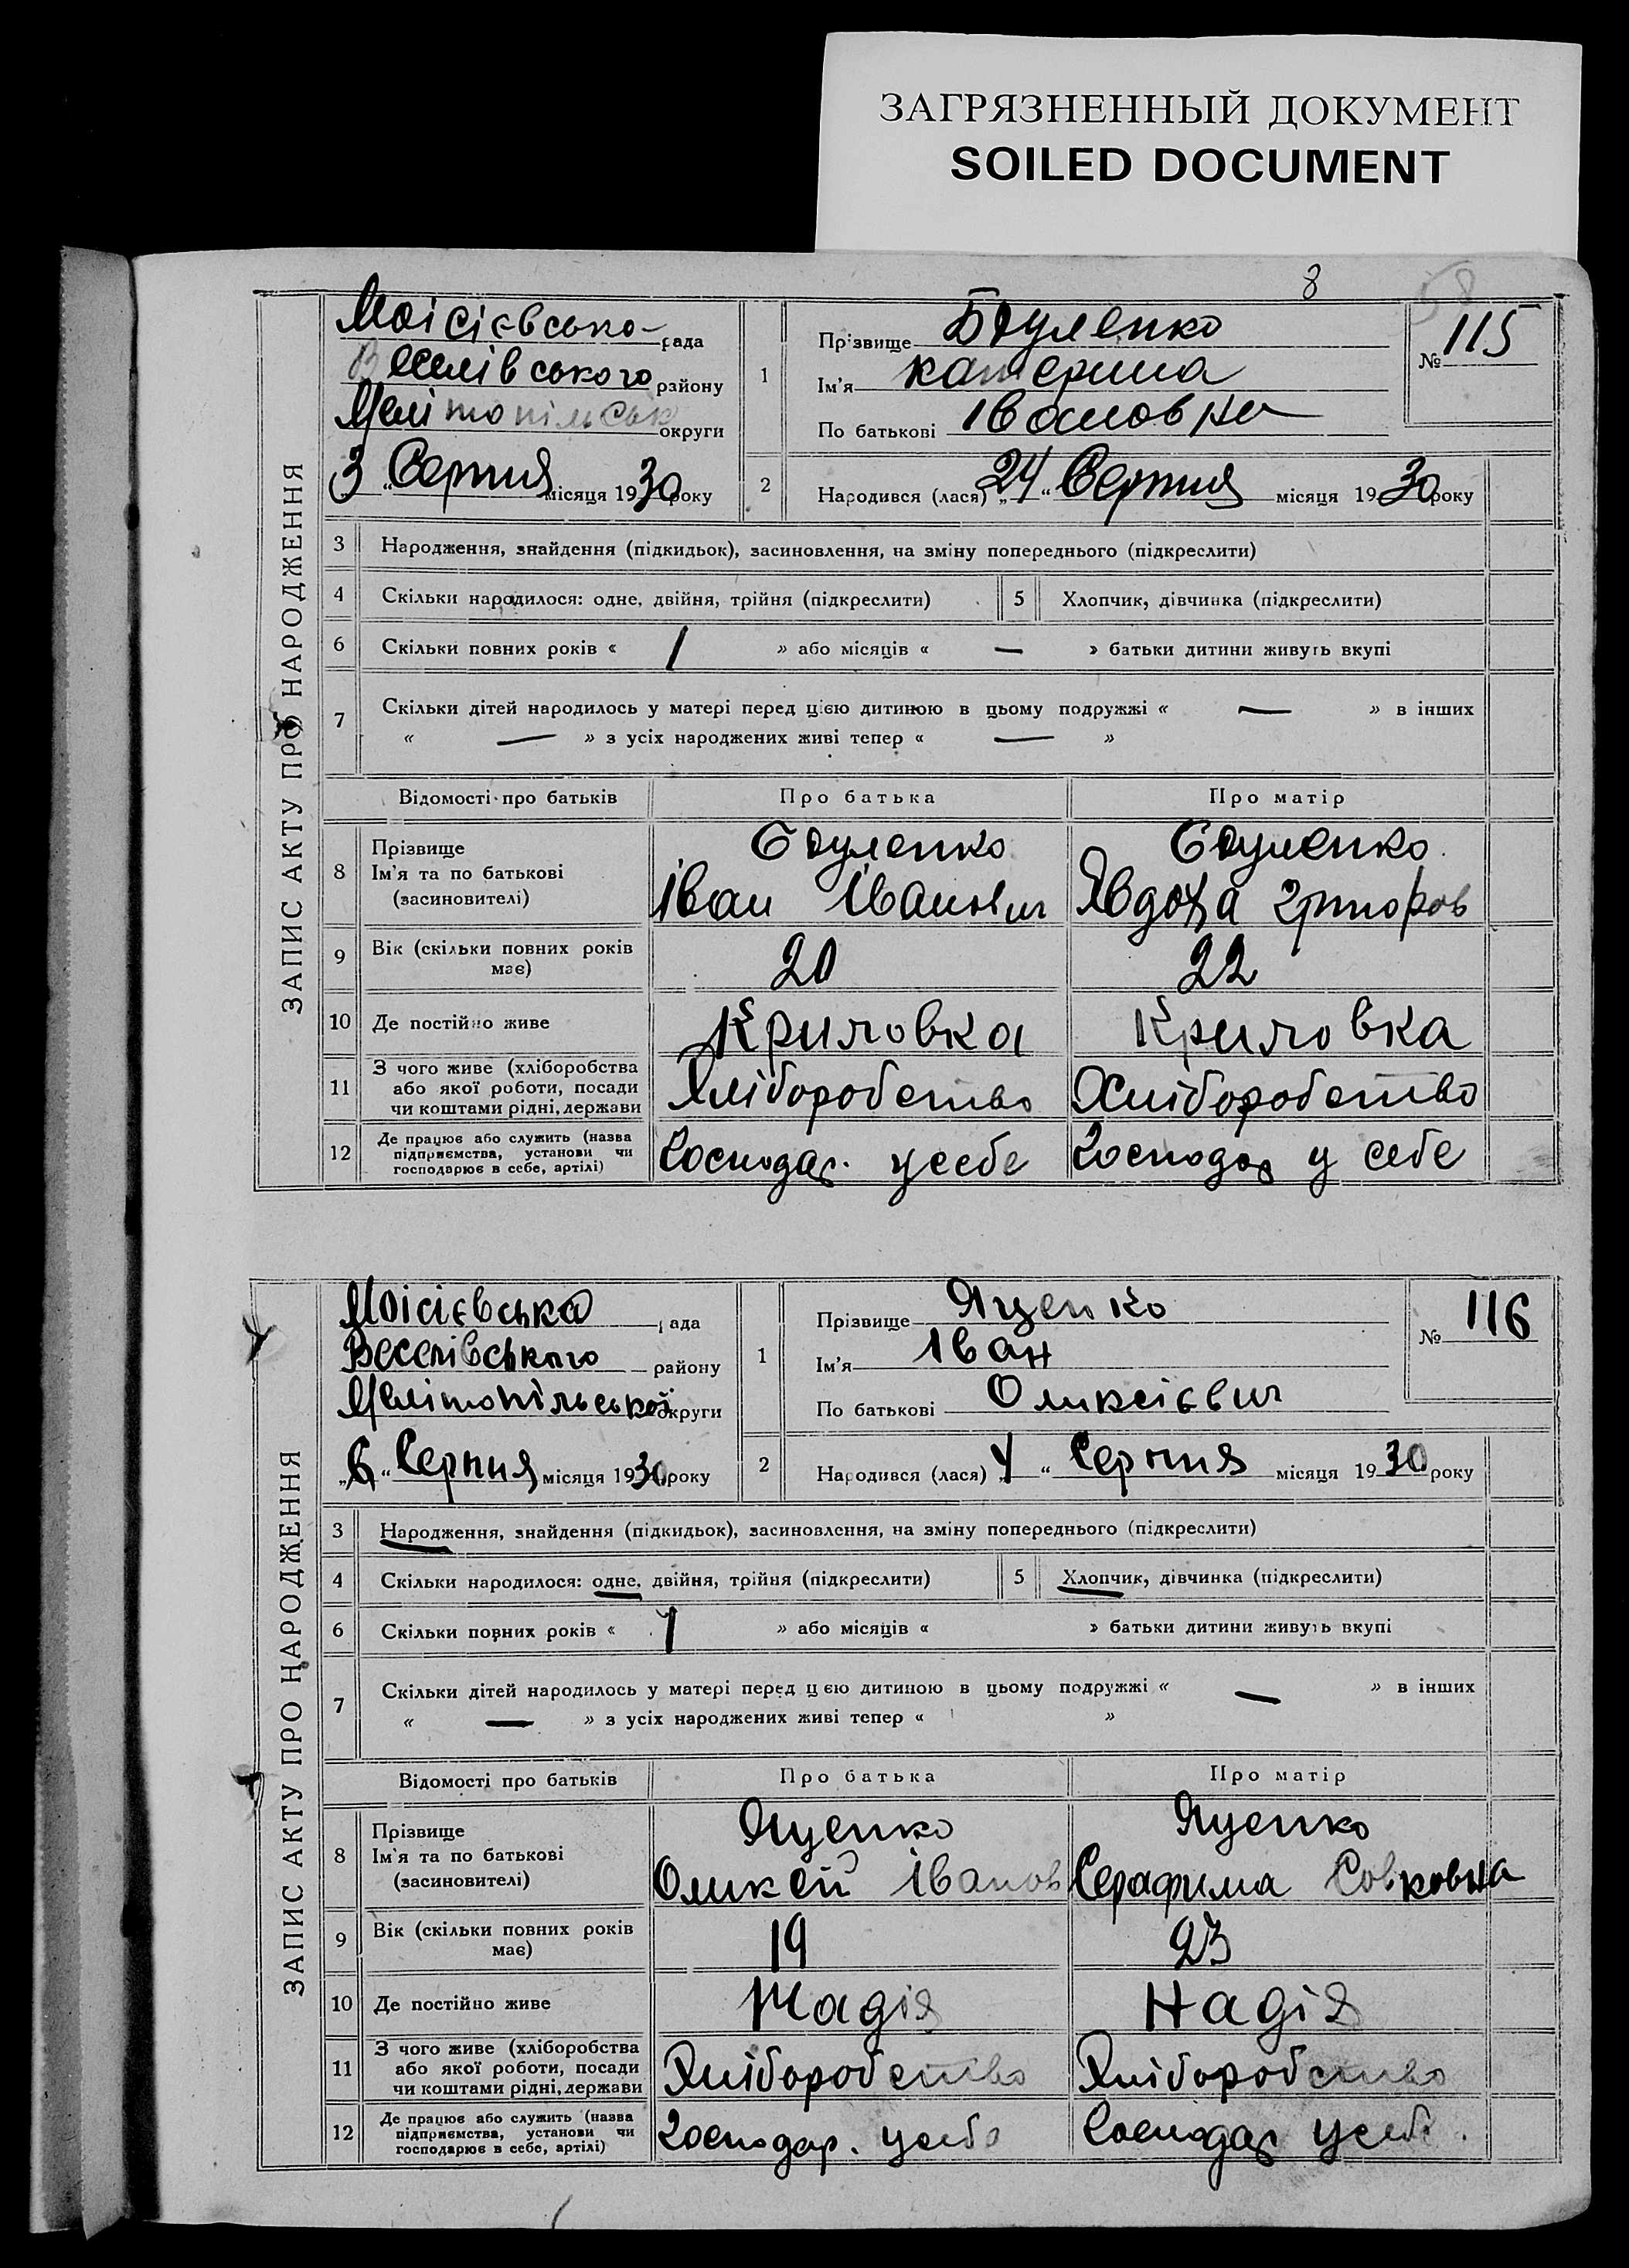 ЗАГРЯЗНЕННЫЙ ДОКУМЕНТ
SOILED DOCUMENT
8
58
ЗАПИС АКТУ ПРО НАРОДЖЕННЯ
Моісієвська рада
Веселівського району
Мелітопільськ округи
3 " Серпня місяця 1930 року
1
Прізвище
Ім'я катерина
По батькові Івановна
№ 115
2
Народився (лася) „24 " Серпня місяця 1930 року
3 Народження, знайдення (підкидьок), засиновлення, на зміну попереднього (підкреслити)
4 Скільки народилося: одне, двійня, трійня (підкреслити) 5 Хлопчик, дівчинка (підкреслити)
6 Скільки повних років « 1 » або місяців « — » батьки дитини живуть вкупі
7 Скільки дітей народилось у матері перед цією дитиною в цьому подружжі « — » в інших
« — » з усіх народжених живі тепер « — »
Відомості про батьків Про батька Про матір
8 Прізвище
Ім'я та по батькові Іван Іванович Явдоха
(засновителі)
9 Вік (скільки повних років має) 20 22
10 Де постійно живе Криловка Криловка
11 З чого живе (хліборобства або якої роботи, посади чи коштами рідні, держави Хліборобство Хліборобство
12 Де працює або служить (назва підприємства, установи чи господарює в себе, артілі) Господар. у себе Господар у себе
ЗАПИС АКТУ ПРО НАРОДЖЕННЯ
Моісієвська рада
Веселівського району
Мелітопільської округи
„6" Серпня місяця 1930 року
1
Прізвище Яценко
Ім'я Іван
По батькові Оликсієвич
№ 116
2
Народився (лася) „4 " Серпня місяця 1930 року
3 Народження, знайдення (підкидьок), засиновлення, на зміну попереднього (підкреслити)
4 Скільки народилося: одне, двійня, трійня (підкреслити) 5 Хлопчик, дівчинка (підкреслити)
6 Скільки повних років « 1 » або місяців « » батьки дитини живуть вкупі
7 Скільки дітей народилось у матері перед цею дитиною в цьому подружжі « — » в інших
« — » з усіх народжених живі тепер « »
Відомості про батьків Про батька Про матір
8 Прізвище Яценко Яценко
Ім'я та по батькові Оликсій Іванов Серафима Савковна
(засиновителі)
9 Вік (скільки повних років має) 19 23
10 Де постійно живе Надія Надія
11 З чого живе (хліборобства або якої роботи, посади чи коштами рідні, держави Хліборобство Хліборобство
12 Де працює або служить (назва підприємства, установи чи господарює в себе, артілі) Господар. у себе Господар у себе